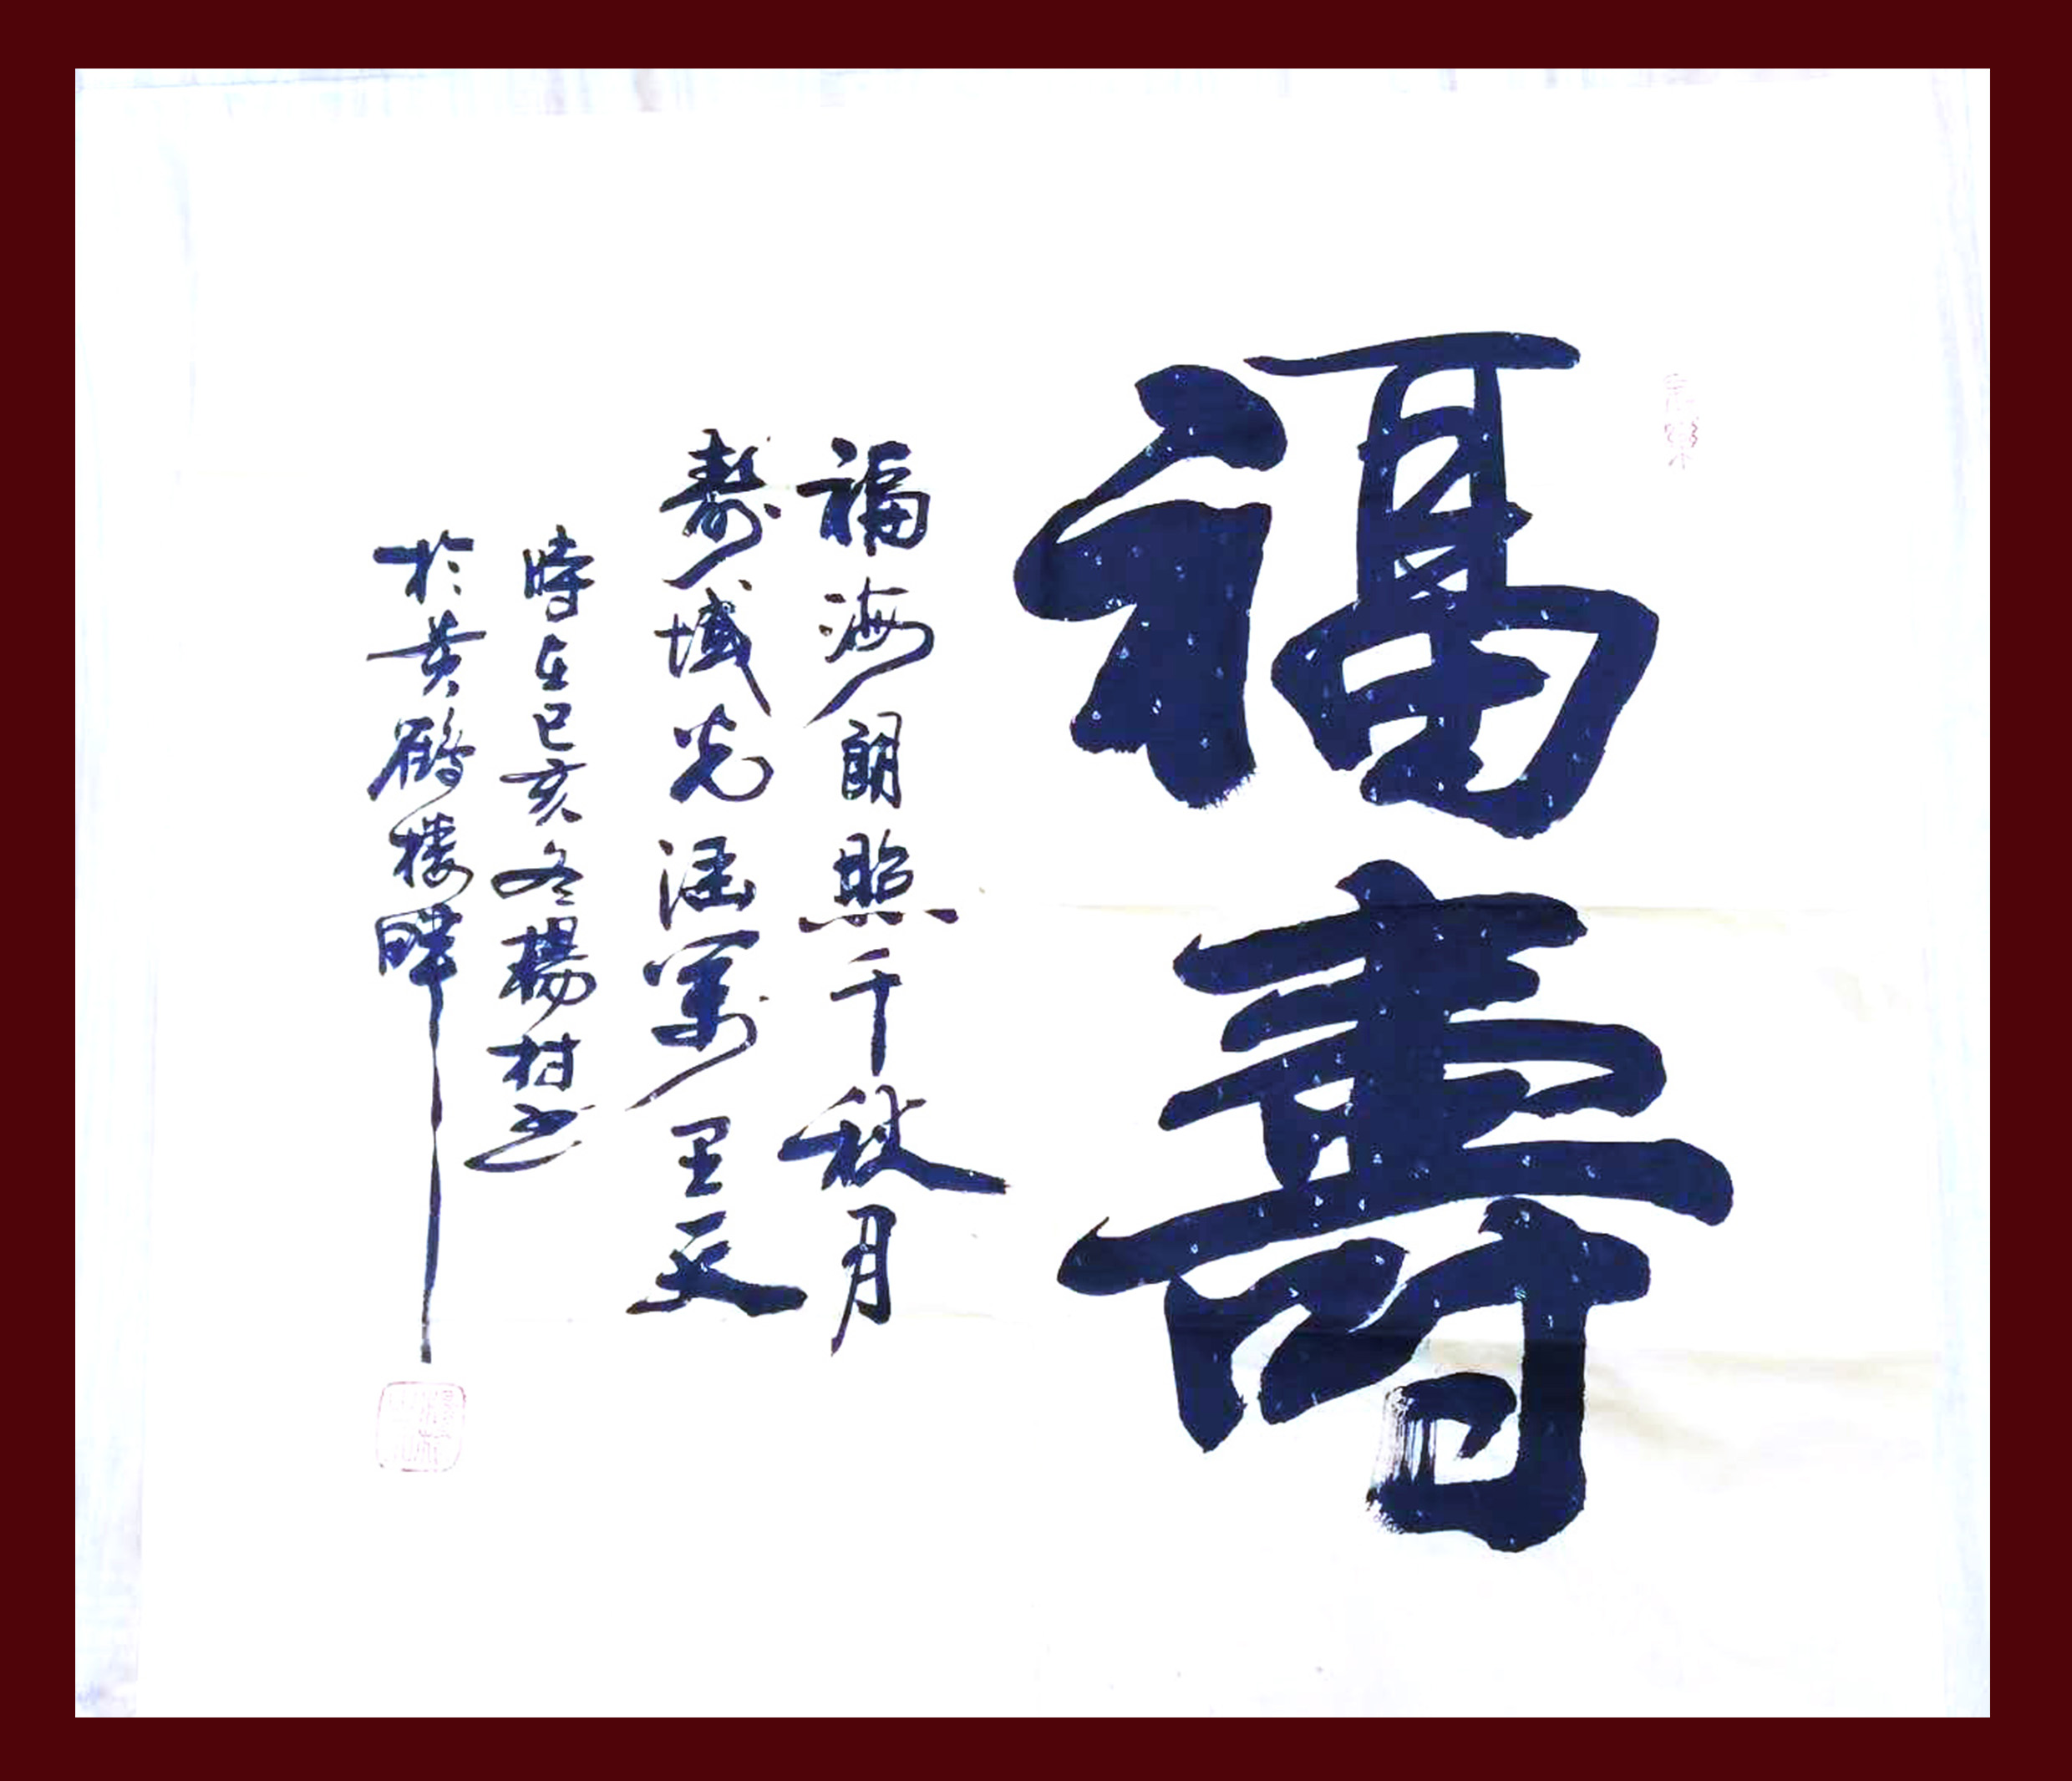 福壽
福海朗照千秋月
壽域光涵萬里天
時在己亥冬楊村書
於黃鶴樓畔